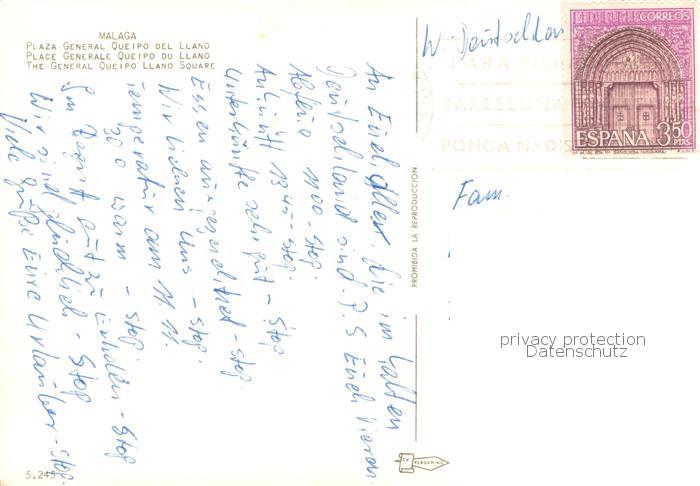 MALAGA
PLAZA GENERAL QUEIPO DEL LLANO
PLACE GENERALE QUEIPO DU LLANO
THE GENERAL QUEIPO LLANO SQUARE
An Euch Aller. Die im kalten
Deutschland sind. P.S Euch
Abflug 1100 - stop.
Ankunft 1345 - stop.
Unterkünfte sehr gut - stop
Essen ausgezeichnet - stop
Wir sonnen uns - stop.
Temperatur am 11.11.
30° warm - stop
Sm gut zu erholen - stop
Wir sind glücklich - Stop
Viele Grüße Eure Urlauber - stop.
5.245
PROHIBIDA LA REPRODUCCION
PERGAMINO
W. Deutschland
CORREOS
ESPAÑA 3,50
PTAS
PARA
BARCELONA
PONGA N.º DIS
Fam.
privacy protection
Datenschutz